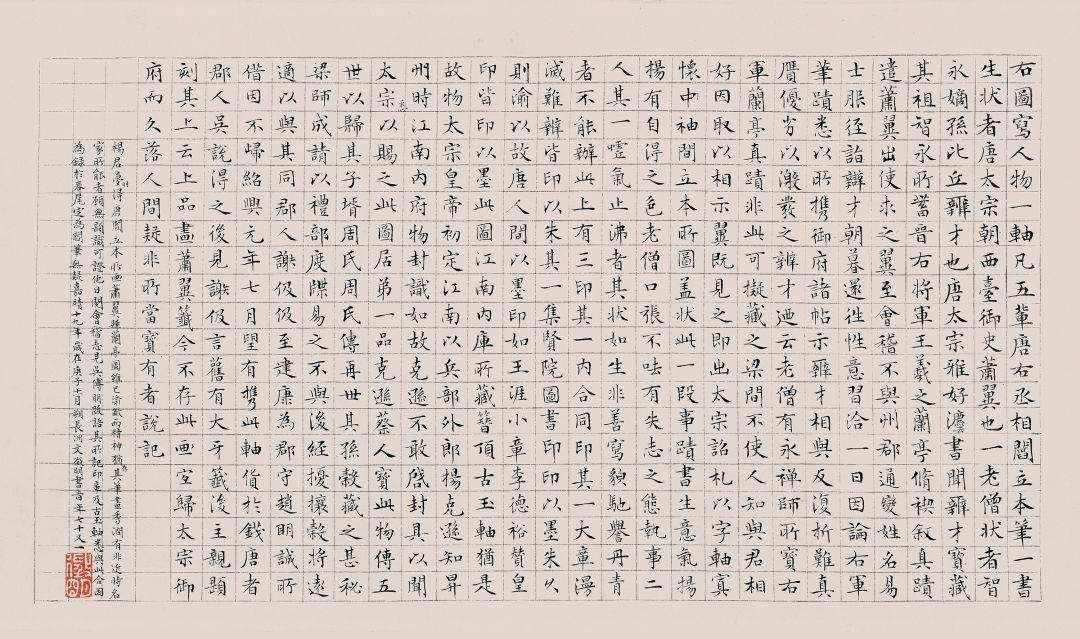 右圖寫人物一軸凡五輩唐右丞相閻立本筆一書
生狀者唐太宗朝西臺御史蕭翼也一老僧狀者智
永嫡孫比丘辨才也唐太宗雅好灋書聞辨才寶藏
其祖智永所蓄晉右將軍王羲之蘭亭脩禊敘真蹟
遣蕭翼出使求之翼至會稽不與州郡通變姓名易
士服徑詣辯才朝暮還往性意習洽一日因論右軍
筆蹟悉以所攜御府諸帖示辨才相與反復折難真
贗優劣以激發之辨才迺云老僧有永禪師所寶右
軍蘭亭真蹟非此可擬藏之梁間不使人知與君相
好因取以相示翼既見之即出太宗詔札以字軸寘
懷中袖間立本所圖盖狀此一段事蹟書生意氣揚
揚有自得之色老僧口張不呿有失志之態執事二
人其一噓氣止沸者其狀如生非善寫貌馳譽丹青
者不能辦此上有三印其一內合同印其一大章漫
滅難辨皆印以朱其一集賢院圖書印印以墨朱久
則渝以故唐人間以墨印如王涯小章李德裕贊皇
印皆印以墨此圖江南內庫所藏簪頂古玉軸猶是
故物太宗皇帝初定江南以兵部外郎楊克遜知昇
州時江南內府物封識如故克遜不敢啟封具以聞
太宗悉以賜之此圖居第一品克遜蔡人寶此物傳五
世以歸其子壻周氏周氏傳再世其孫穀藏之甚秘
梁師成請以禮部度牒易之不與後經擾攘穀將遠
適以與其同郡人謝伋伋至建康為郡守趙明誠所
借因不歸紹興元年七月望有攜此軸貨於錢唐者
郡人吳說得之後見謝伋言舊有大牙籤後主親題
刻其上云上品畫蕭翼籤今不存此画宜歸太宗御
府而久落人間疑非所當寶有者說記
楊君夢羽得唐閻立本所画蕭翼賺蘭亭圖雖已渝敝而精神猶在其筆畫秀潤有非近時名
家所能者顧無題識可證他日閱會稽志見吳傅朋跋語其所記印章及古玉軸悉與此合因
為錄於卷尾定為閻筆無疑嘉靖十九年歲在庚子十月朔長洲文徵明書旹年七十又一